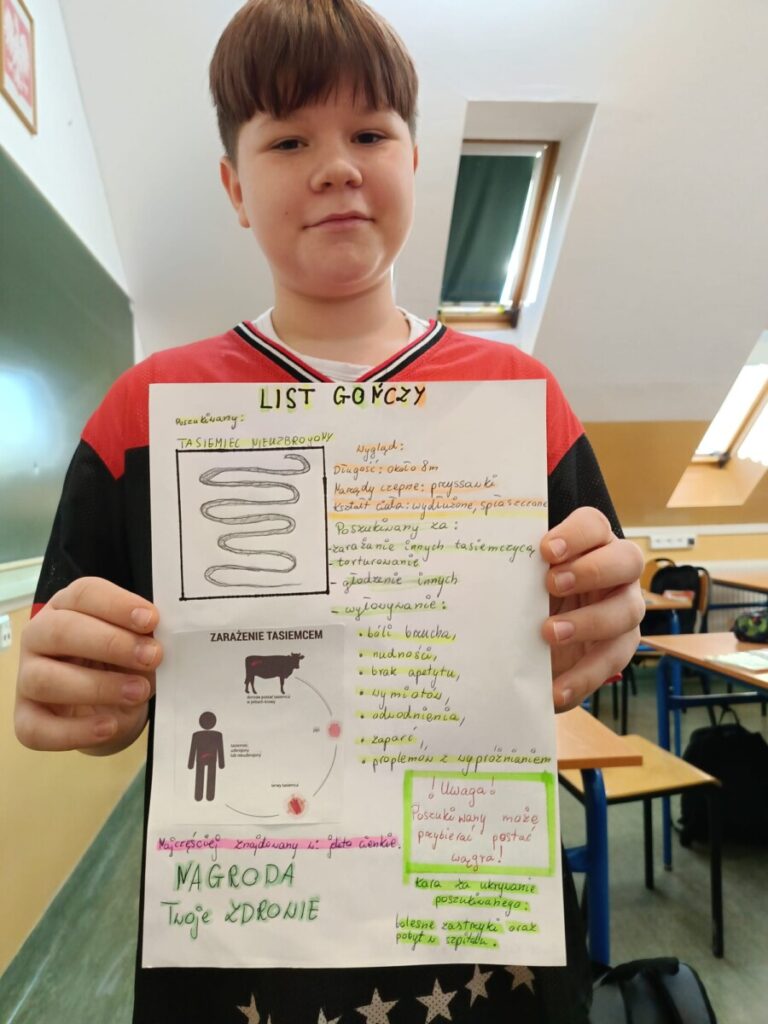 LIST GOŃCZY
Poszukiwany:
TASIEMIEC NIEUZBROJONY
Wygląd:
Długość: około 8m
Narządy czepne: przyssawki
Kształt ciała: wydłużone, spłaszczone
Poszukiwany za:
-zarażanie innych tasiemczycą
-torturowanie
- głodzenie innych
- wywoływanie:
• bóli brzucha,
• nudności,
• brak apetytu,
• wymiotów,
• odwodnienia,
• zaparć,
• proplemów z wypróżnianiem
ZARAŻENIE TASIEMCEM
tasiemiec
uzbrojony
lub nieuzbrojony
jaja
larwy tasiemca
! Uwaga!
Poszukiwany może
przybierać postać
wągra!
Najczęściej znajdowany w: jelita cienkie.
NAGRODA
Twoje ZDROWIE
Kara za ukrywanie
poszukiwanego:
bolesne zastrzyki oraz
pobyt w szpitalu.